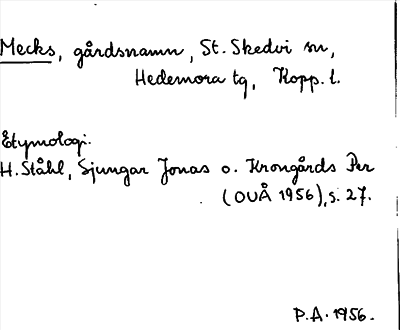 Mecks, gårdsnamn, St. Skedvi sn,
Hedemora tg, Kopp. l.
Etymologi.
H. Ståhl, Sjungar Jonas o. Krongårds Per
(OUÅ 1956), s. 27.
P.A. 1956.